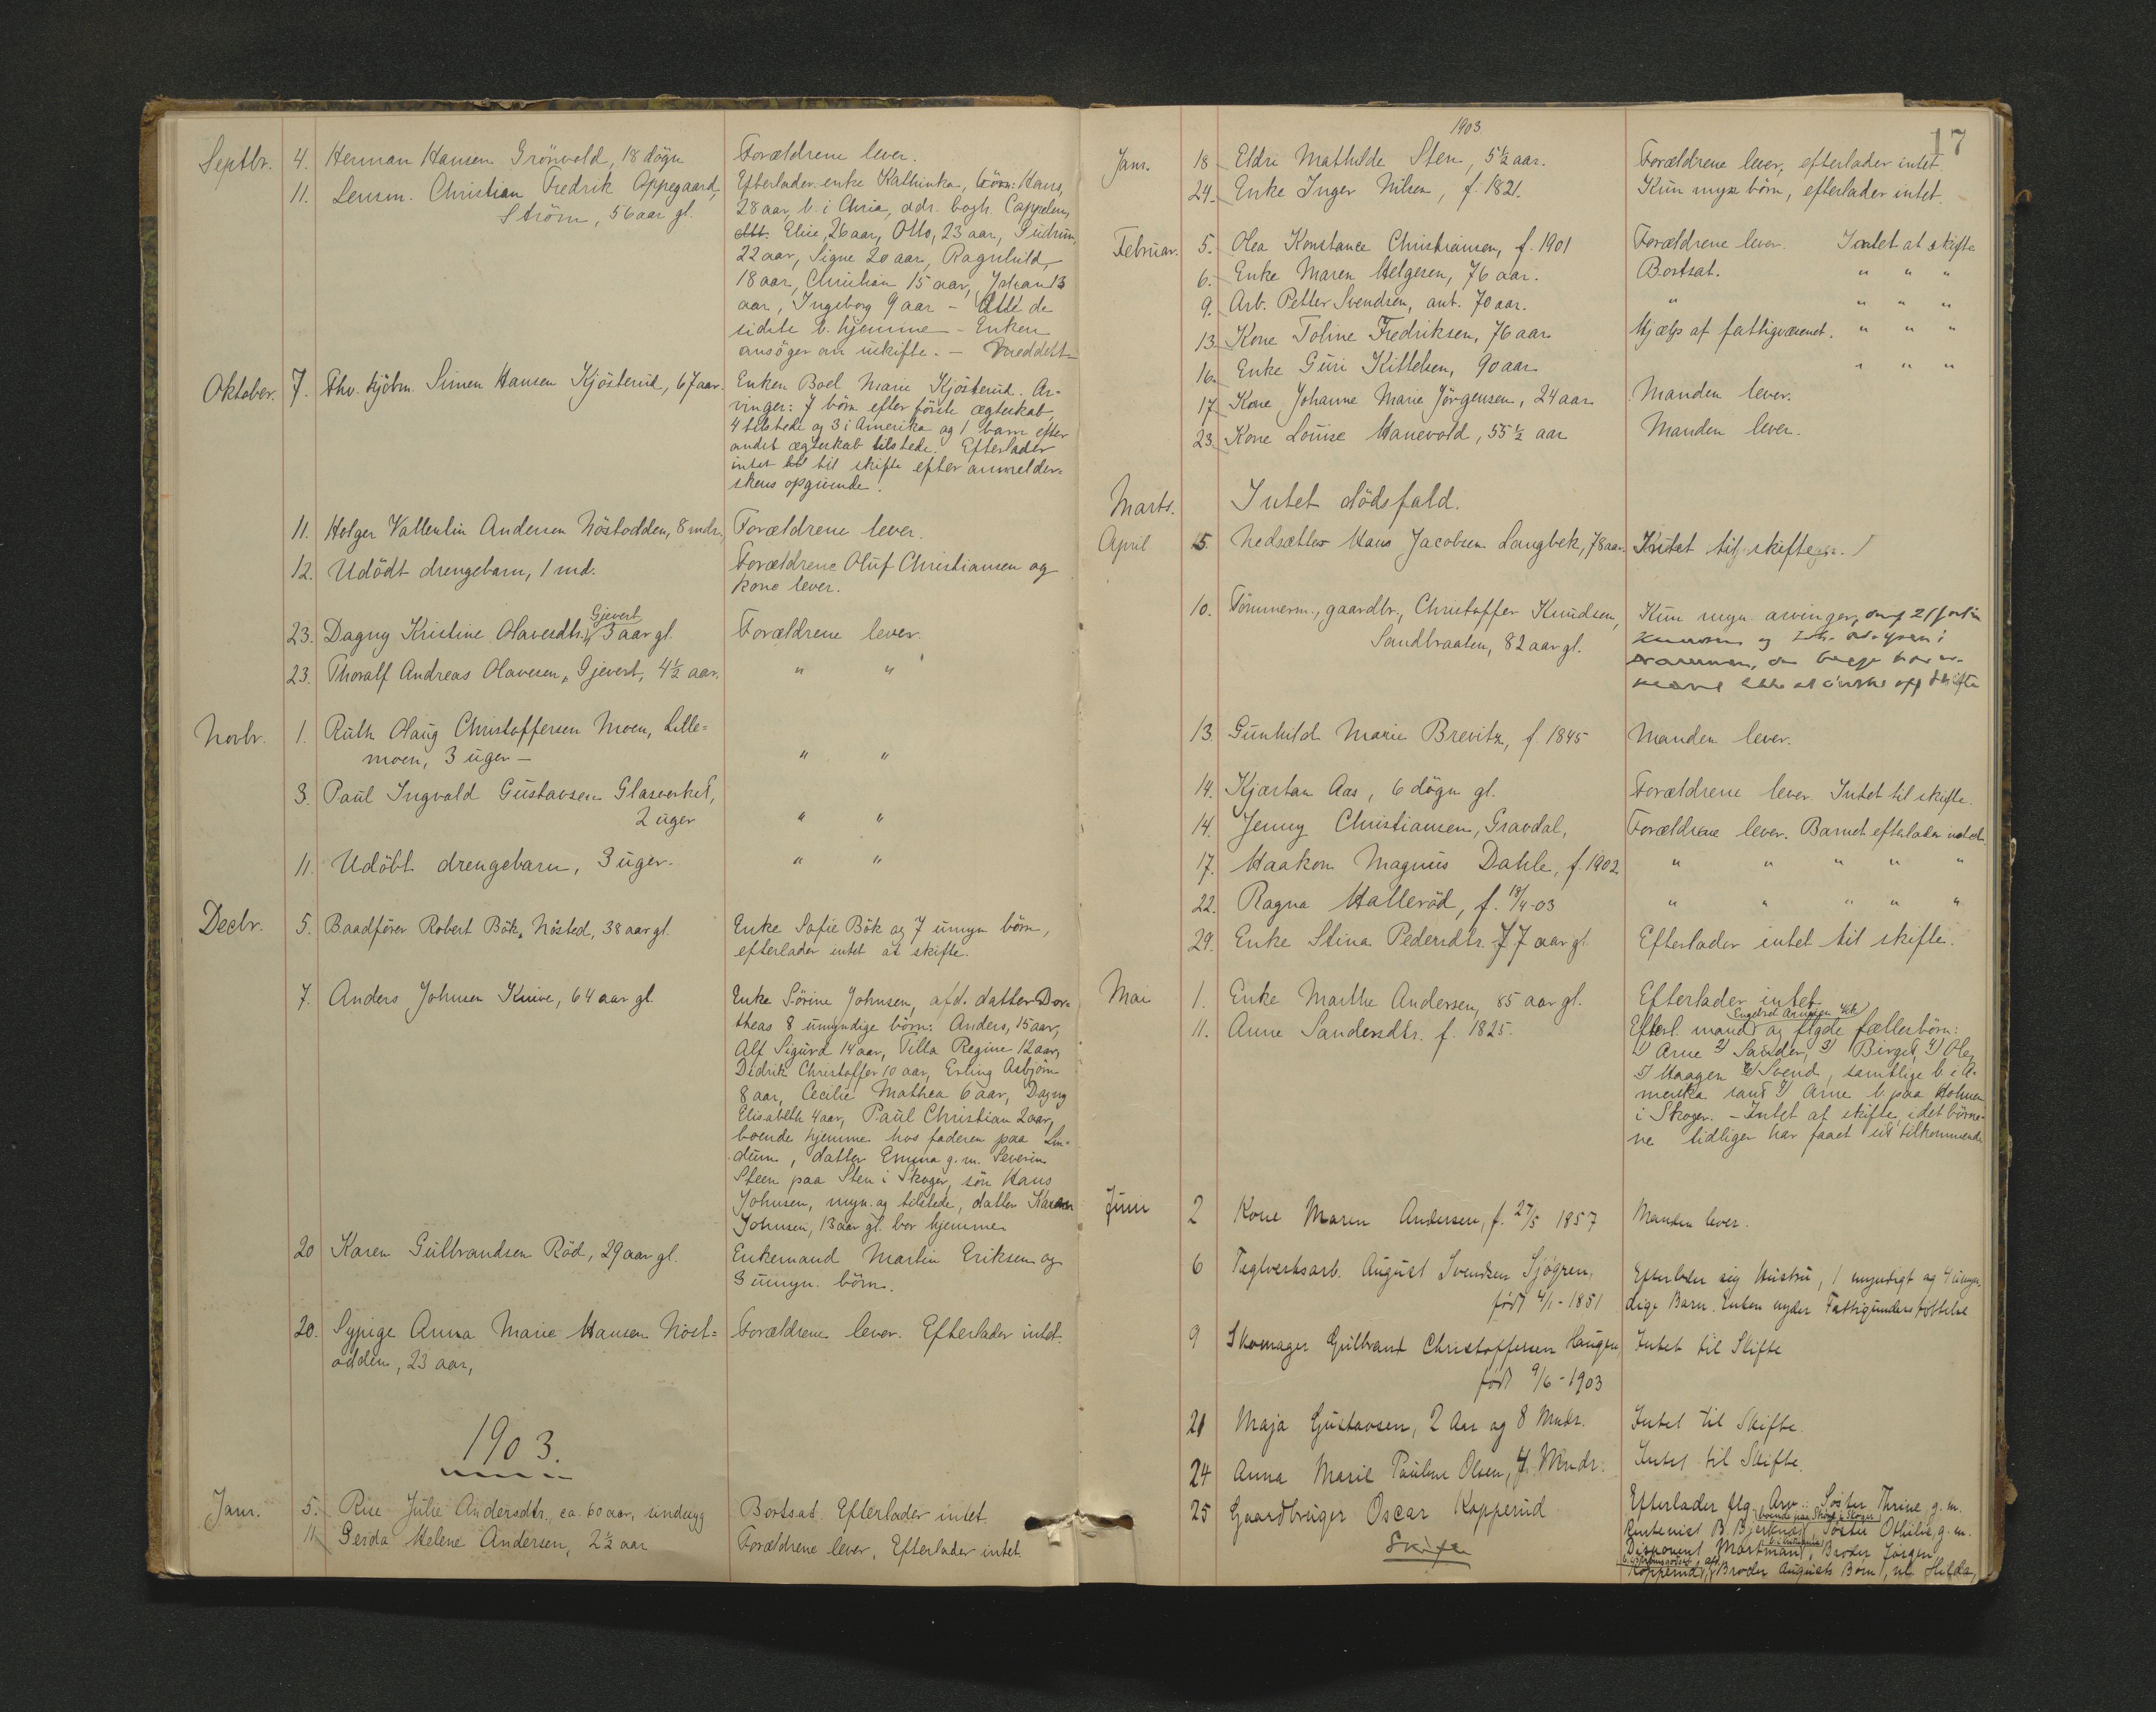 Septbr. 4. Herman Hansen Grönvold, 18 dögn Forældrene lever.
11. Lensm. Christian Fredrik Oppegaard, Efterlader enke Kathinka, börn: Hans,
Ström, 56 aar gl. 28 aar, b. i Chria, adr. bogh. Cappelen,
Elise, 26 aar, Otto, 23 aar, Gudrun,
22 aar, Signe 20 aar, Ragnhild,
18 aar, Christian 15 aar, Johan 13
aar, Ingeborg 9 aar – de
sidste b. hjemme – Enken
ansöger om uskifte. –
Oktober. 7. Fhv. kjöbm. Simen Hansen Kjösterud, 67 aar. Enken Boel Marie Kjösterud. Ar-
vinger: 7 börn efter förste ægteskab,
4 tilstede og 3 i Amerika og 1 barn efter
andet ægteskab tilstede. Efterlader
intet til skifte efter anmelder-
skens opgivende.
11. Holger Vallentin Andersen Nöstodden, 8 mdr. Forældrene lever.
12. Udödt drengebarn, 1 md. Forældrene Oluf Christiansen og
kone lever.
Gjevert
23. Dagny Kristine Olavesdtr. 3 aar gl. Forældrene lever.
23. Thoralf Andreas Olavesen, Gjevert, 4½ aar. " "
Novbr. 1. Ruth Olaug Christoffersen Moen, Lille-
moen, 3 uger – " "
3. Paul Ingvald Gustavsen Glasverket,
2 uger " "
11. Udöbt drengebarn, 3 uger. " "
Decbr. 5. Baadförer Robert Bök, Nösted, 38 aar gl. Enke Sofie Bök og 7 umyn. börn,
efterlader intet at skifte.
7. Anders Johnsen Knive, 64 aar gl. Enke Sörine Johnsen, afd. datter Dor-
theas 8 umyndige börn: Anders, 15 aar,
Alf Sigurd 14 aar, Tilla Regine 12 aar,
Didrik Christoffer 10 aar, Erling Asbjörn
8 aar, Cecilie Mathea 6 aar, Dagny
Elisabeth 4 aar, Paul Christian 2 aar,
boende hjemme hos faderen paa Lin-
dum, datter Emma g. m. Severin
Steen paa Sten i Skoger, sön Hans
Johnsen, myn. og tilstede, datter Karen
Johnsen, 13 aar gl. bor hjemme.
20 Karen Gulbrandsen Röd, 29 aar gl. Enkemand Martin Eriksen og
3 umyn. börn.
20. Sypige Anna Marie Hansen Nöst- Forældrene lever. Efterlader intet.
odden, 23 aar,
1903.
Janr. 5. Rise Julie Andersdtr., ca. 60 aar, sindssyg Bortsat. Efterlader intet.
11 Gerda Helene Andersen, 2½ aar Forældrene lever, Efterlader intet.
17
1903
Janr. 18 Eldri Mathilde Sten, 5½ aar. Forældrene lever, efterlader intet.
24. Enke Inger Nilsen, f. 1821. Kun myn börn, efterlader intet.
Februar. 5. Olea Konstance Christiansen, f. 1901 Forældrene lever. Intet at skifte
6. Enke Maren Helgesen, 76 aar. Bortsat. " " "
9. Arb. Petter Svendsen, ant. 70 aar. " " " "
13. Kone Toline Fredriksen, 76 aar. Hjælp af fattigvæsenet. " " "
16. Enke Guri Kittelsen, 90 aar. " " "
17. Kone Johanne Marie Jörgensen, 24 aar. Manden lever.
23. Kone Louise Hanevold, 55½ aar Manden lever.
Marts. Intet dödsfald.
April 5. Nedsætter Hans Jacobsen Langbek, 78 aar. Intet til skifte.
10. Tömmerm., gaardbr., Christoffer Knudsen, Kun myn. arvinger,
Sandbraaten, 82 aar gl. og
13. Gunhild Marie Brevitz, f. 1845 Manden lever.
14. Kjartan Aas, 6 dögn gl. Forældrene lever. Intet til skifte.
14. Jenny Christiansen, Gravdal, Forældrene lever. Barnet efterlader intet.
17. Haakon Magnus Dahle, f. 1902 " " " " "
22. Ragna Halleröd, f. 18/4-03 " " " " "
29. Enke Stina Pedersdtr. 77 aar gl. Efterlader intet til skifte.
Mai 1. Enke Marthe Andersen, 85 aar gl. Efterlader intet.
11. Anne Sandersdtr. f. 1825. Efterl. mand og flgde fællesbörn:
1) Arne 2) Sander, 3) Birgit, 4) Ole,
5) Haagen 6) Svend, samtlige b. i A-
merika samt Arne b. paa Holmen
i Skoger. – Intet at skifte, idet börne-
ne tidligere har faaet sit tilkommende
Juni 2 Kone Maren Andersen, f. 27/5 1857 Manden lever.
6 Teglverksarb. August Svendsen Sjögren, Efterlader sig Hustru, 1 myndigt og 4 umyn-
född 4/1-1851 dige Barn. Enken nyder Fattigunderstöttelse
9 Skomager Gulbrand Christoffersen Haugen, Intet til Skifte
född 9/6-1903
21 Maja Gustavsen, 2 Aar og 8 Mndr. Intet til Skifte.
24 Anna Marie Pauline Olsen, 4 Mndr. Intet til Skifte.
25 Gaardbruger Oscar Kopperud Efterlader flg. Arv.: Söster Thrine g. m.
boende paa i Skoger
Rentenist B. Bjerknes, Söster Othilie g. m.
Skifte Disponent Martmand, Broder Jörgen
Kopperud, Broder Augusts Börn, nl. Hilda,